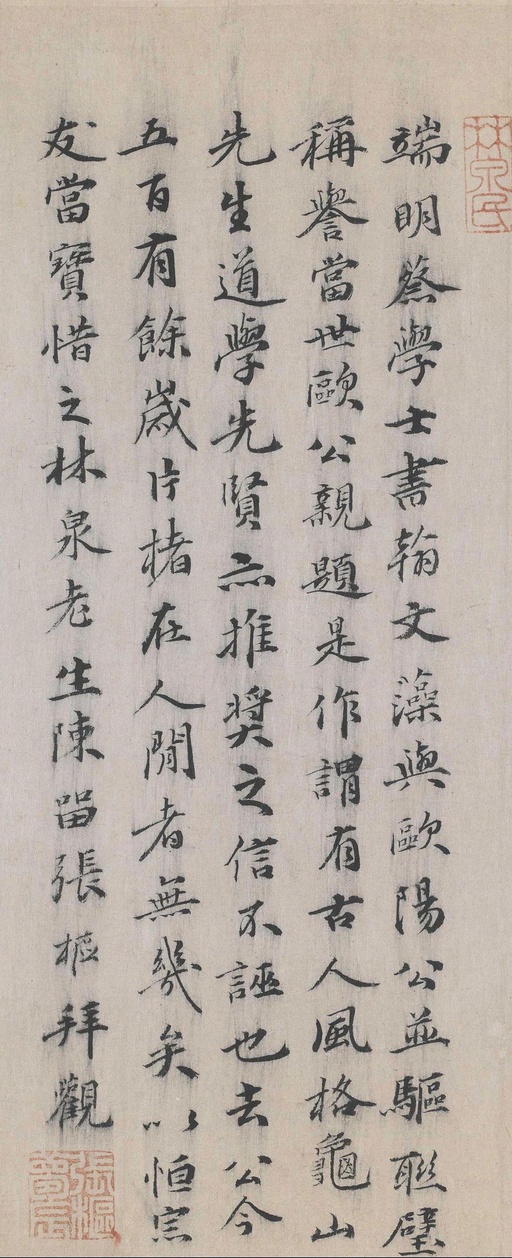 林泉民
端明蔡學士書翰文藻與歐陽公並驅聯璧
稱譽當世歐公親題是作謂有古人風格龜山
先生道學先賢亦推奬之信不誣也去公今
五百有餘歲片楮在人間者無幾矣以恒宗
友當寶惜之林泉老生陳留張樞拜觀
張樞